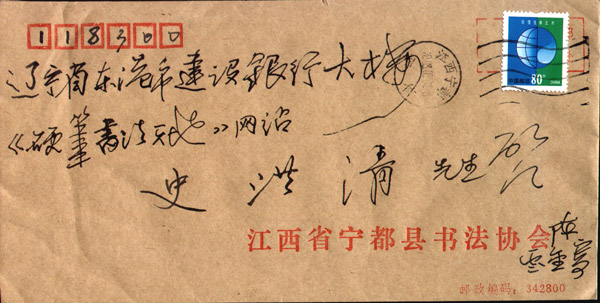 118300
辽宁省东港市建设银行大楼
《硬筆書法天地》网站
史洪清先生启
江西省宁都县书法协会
邮政编码：342800
中国邮政 80分
江西宁都